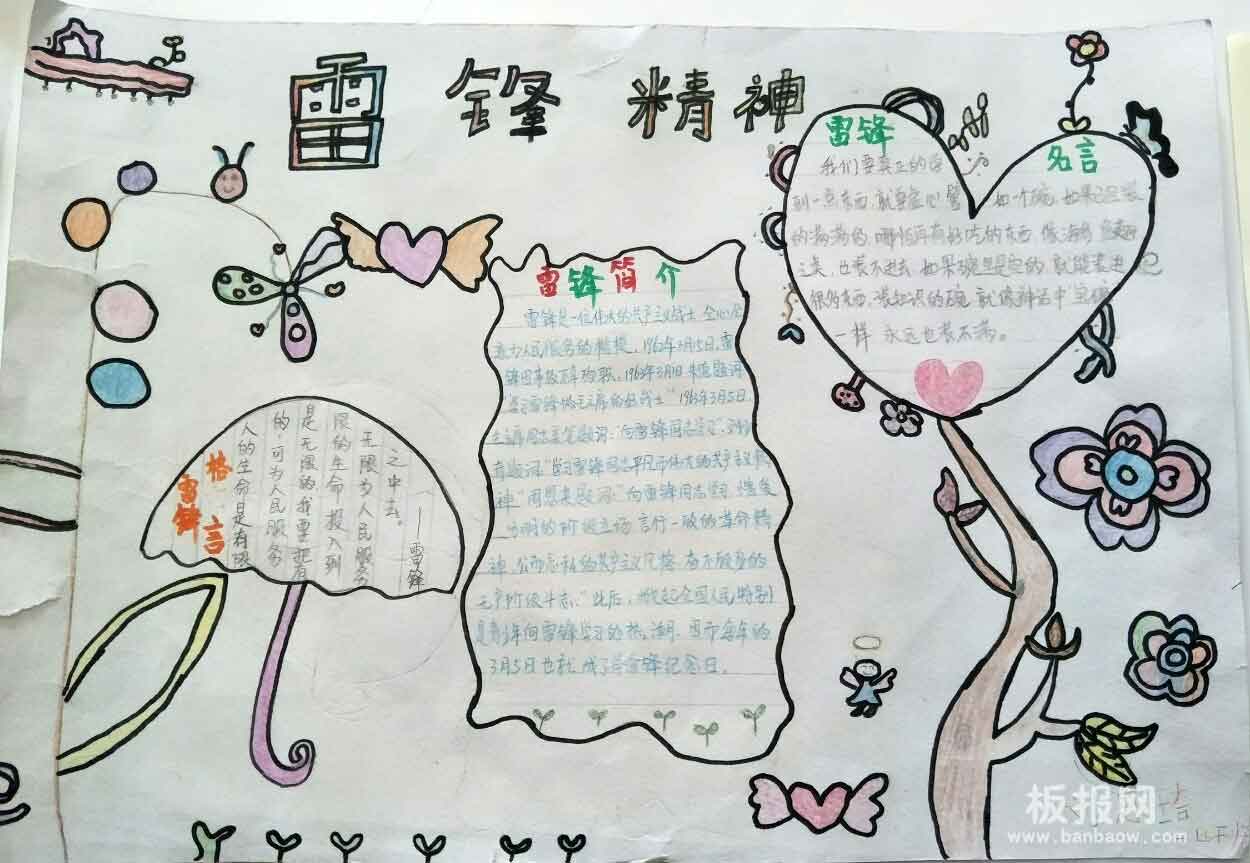 雷锋精神
雷锋名言
我们要真正的学
到一点东西,就要虚心。譬如一个碗,如果已经装
的满满的,哪怕再有好吃的东西,像海参、鱼翅
之类,也装不进去,如果碗里是空的,就能装进
很多东西,装知识的碗,就像神话中"宝碗"
一样 永远也装不满。
雷锋简介
雷锋是一位伟大的共产主义战士,全心全
意为人民服务的楷模,1962年8月15日,雷
锋因
1963年3月5日,
"向雷锋同志学习"
雷锋同志平凡而伟大的共产主义
神"周恩来题词"向雷锋同志学习,憎爱
分明的阶级立场 言行一致的革命精
神,公而忘私的共产主义风格,奋不顾身的
无产阶级斗志。"此后,掀起全国人民特别
是青少年向雷锋学习的热潮。而每年的
3月5日也就成了学雷锋纪念日。
雷锋格言
人的生命是有限
的,可为人民服务
是无限的,我要把有
限的生命投入到
无限为人民服务
之中去。
——雷锋
板报网
www.banbaow.com